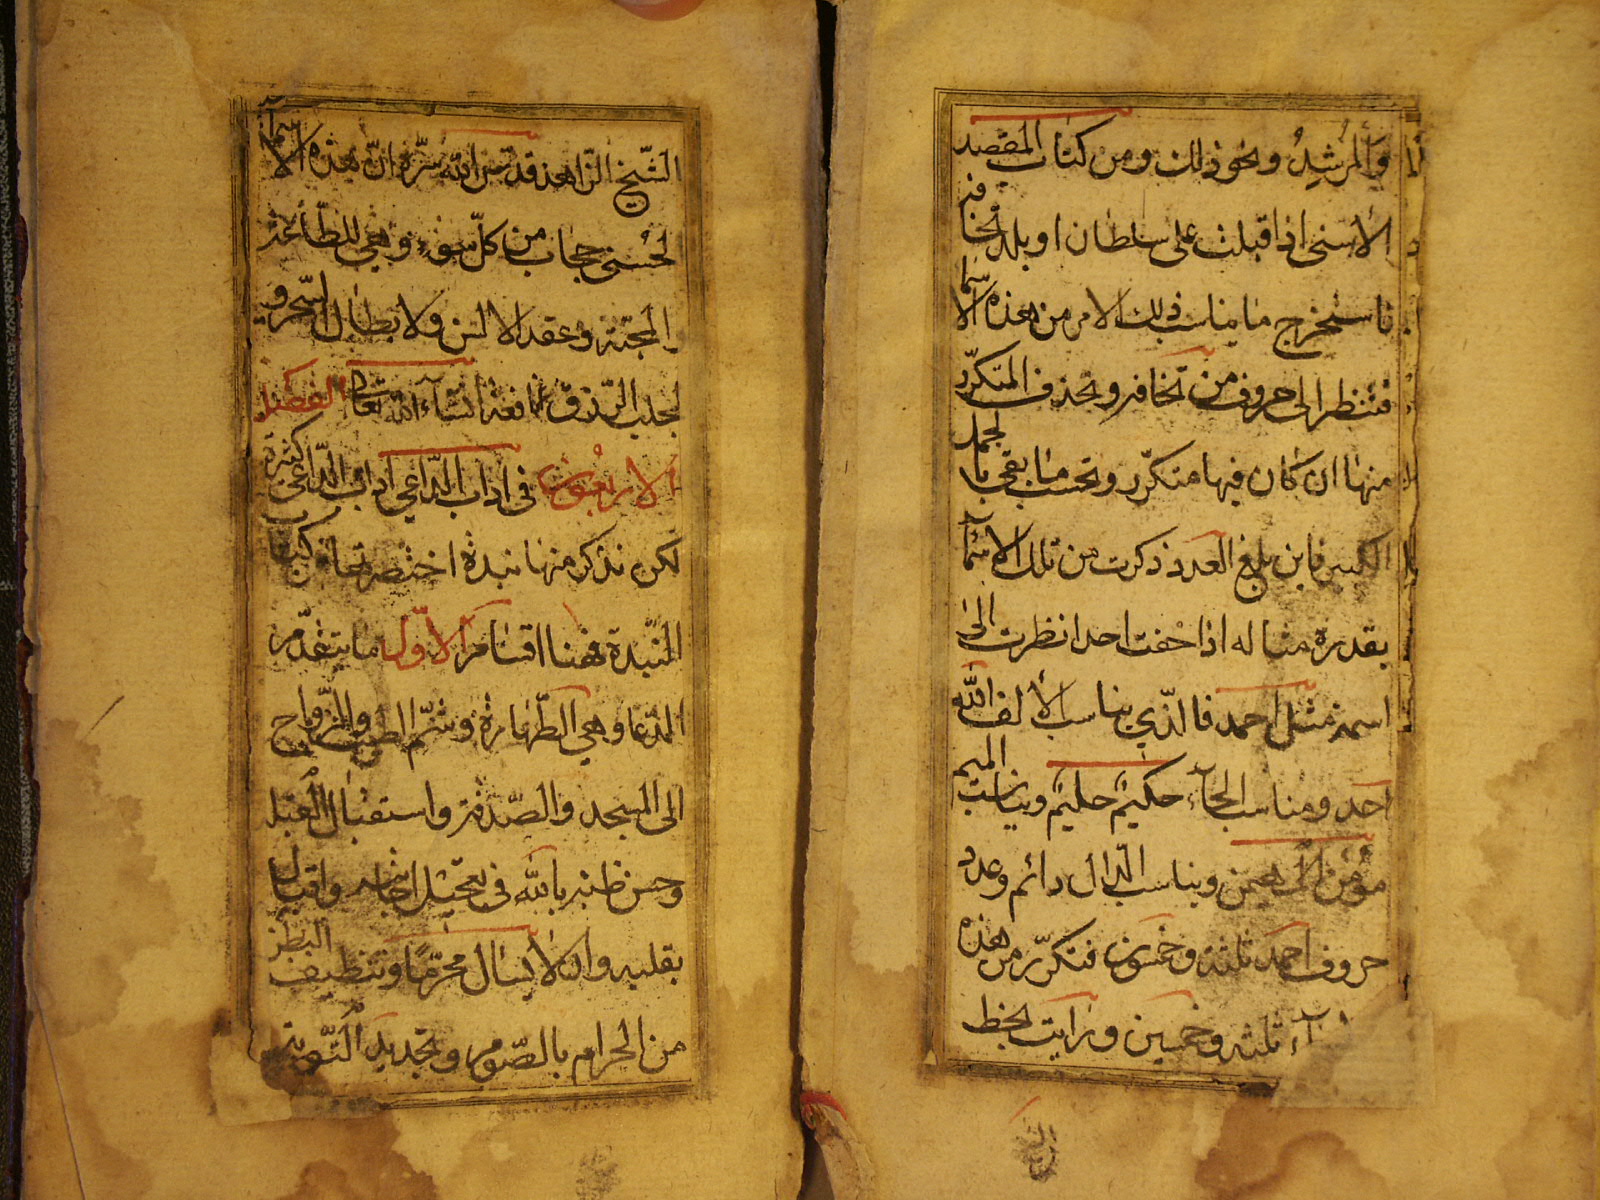 والمرشد ونحو ذلك ومن كتاب المقصد
الاسنى اذا قبلت على سلطان او بلد تخافه
فاستخرج ما يناسب ذلك الامر من هذه الاسما
فتنظر الى حروف من تخافه وتحذف المتكرّر
منها ان كان فيها متكرّر وتحسب ما بقى بالجمل
الكبير فاين بلغ العدد ذكرت من تلك الاسمآ
بقدره مثاله اذا خفت احدا نظرت الى
اسمه مثل احمد فالّذي يناسب الألف الله
احد ومناسب الحآء حكيم حليم ويناسب الميم
مؤمن مهيمن ويناسب الدّال دائم وعدد
حروف احمد ثلثة وخمسون فتكرّر من هذه
ثلثه وخمسين ورايت بخط
الشّيخ الزاهد قدّس الله سرّه انّ هذه الاسمآ
لحسنى حجاب من كلّ سوء وهي للطّاعة
المحبّة وعقد الالسن ولابطال السّحر و
لجلب الرّزق نافعة انشآء الله تعالى الفصل
الاربعون في اداب الدّاعي اداب الدّاعي كثيرة
لكن نذكر منها نبدة اختصرتها من كتبها
النّبدة هنا اقسام الاوّل ما يتقدّم
الدّعا وهي الطّهارة وشمّ الطيب والرّواح
الى المسجد والصّدقة واستقبال القبلة
وحسن ظنه بالله في تعجيل اجابته واقباله
بقلبه وان لا يسال محرّما وتنظيف البطن
من الحرام بالصّوم وتجديد التّوبة